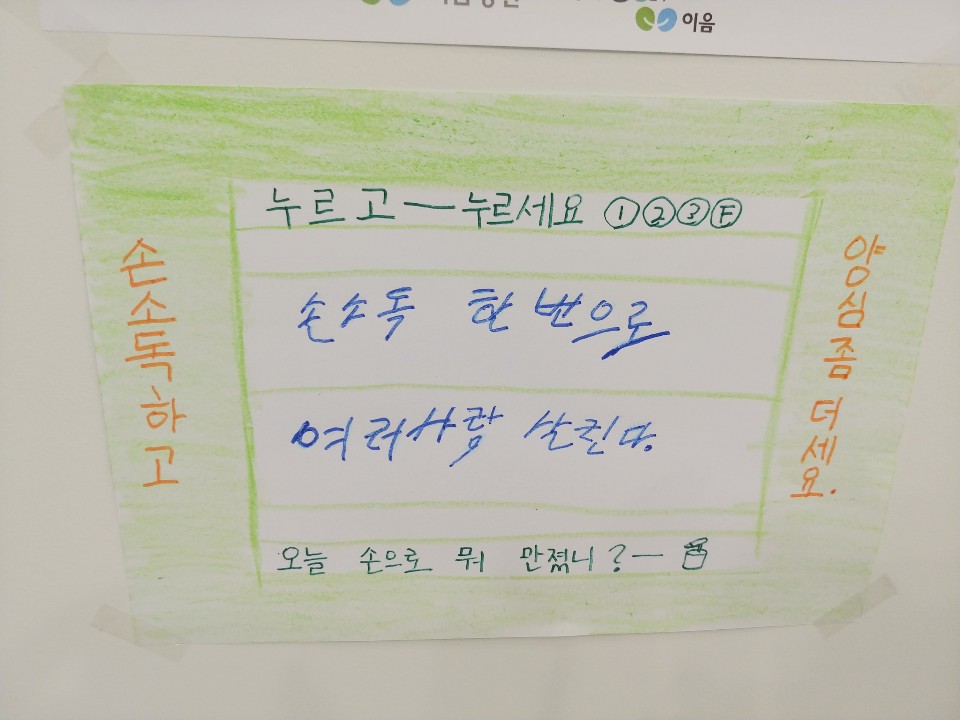 이음
누르고 — 누르세요 ①②③Ⓕ
손소독하고
손소독 한 번으로
여러사람 살린다.
양심좀 더세요.
오늘 손으로 뭐 만졌니? —